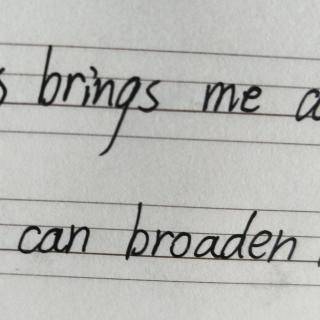 brings me
can broaden